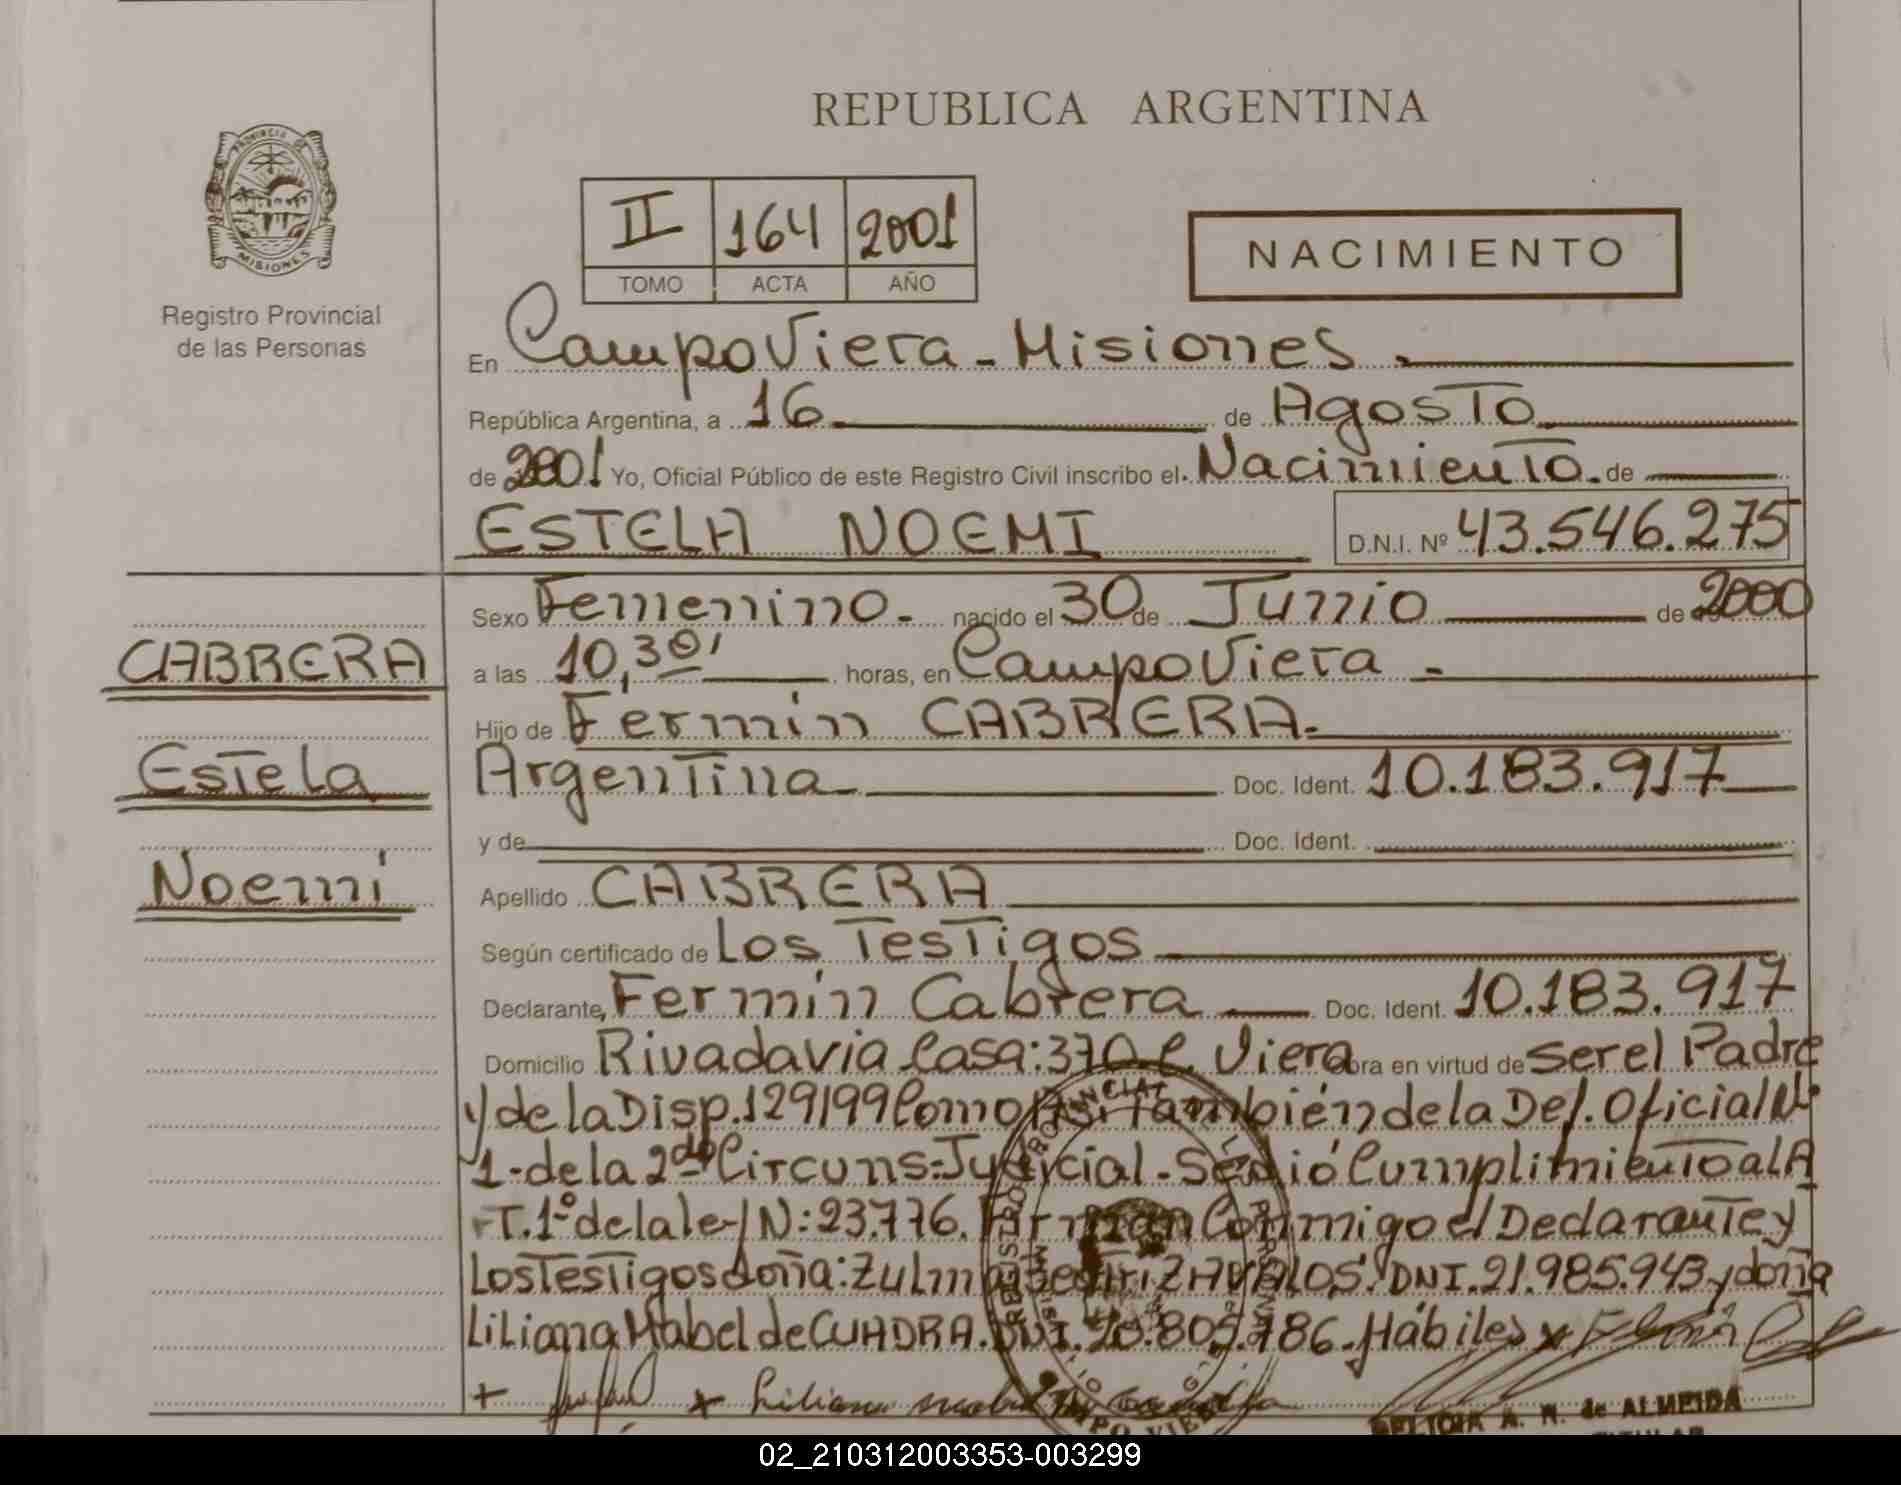 REPUBLICA ARGENTINA
PROVINCIA DE
MISIONES
Registro Provincial
de las Personas
II 164 2001
TOMO ACTA AÑO
NACIMIENTO
En Campo Viera - Misiones.
República Argentina, a 16 de Agosto
de 2001 Yo, Oficial Público de este Registro Civil inscribo el Nacimiento de
ESTELA NOEMI D.N.I. Nº 43.546.275
Sexo Femenino. nacido el 30 de Junio de 2000
CABRERA
a las 10,30' horas, en Campo Viera -
Hijo de Fermín CABRERA.
Estela
Argentina Doc. Ident. 10.183.917
y de Doc. Ident.
Noemi
Apellido CABRERA
Según certificado de Los Testigos
Declarante, Fermín Cabrera Doc. Ident. 10.183.917
Domicilio Rivadavia Casa: 370 C. Viera obra en virtud de ser el Padre
y de la Disp. 129/99 Como Así También de la Def. Oficial Nº
1 - de la 2da Circuns. Judicial - Se dió Cumplimiento al A
RT. 1º de la ley N: 23.776. Firman Conmigo el Declarante y
Los Testigos doña: Zulma Beatriz AVALOS. DNI. 21.985.943 y doña
Liliana Mabel de CUADRA. DNI. 786. Hábiles
+ x Liliana
A. N. de ALMEIDA
TITULAR
02_210312003353-003299